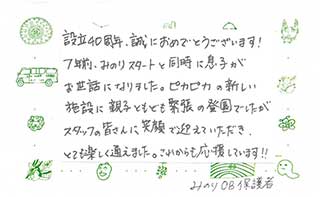 設立40周年、誠におめでとうございます!
7年前、みのりスタートと同時に息子が
お世話になりました。ピカピカの新しい
施設に親子ともども緊張の登園でしたが
スタッフの皆さんに笑顔で迎えていただき、
とても楽しく通えました。これからも応援しています!!
みのりOB保護者